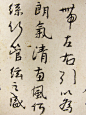 帶左右引以為
朗氣清惠風和
絲竹管絃之盛